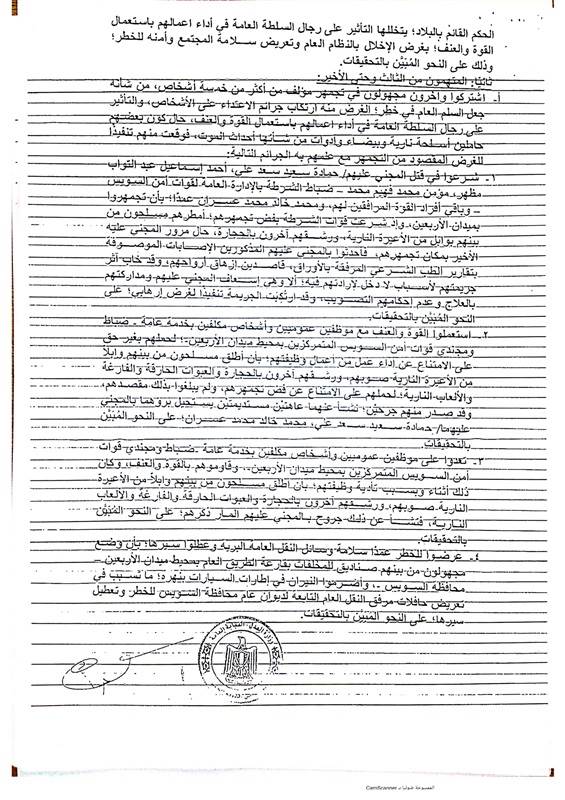 الحكم القائم بالبلاد؛ يتخللها التأثير على رجال السلطة العامة في أداء اعمالهم باستعمال
القوة والعنف؛ بغرض الإخلال بالنظام العام وتعريض سلامة المجتمع وأمنه للخطر؛
وذلك على النحو المُبَيَّن بالتحقيقات.
ثانيًا: المتهمون من الثالث وحتى الأخير:
أ- اشتركوا وآخرون مجهولون في تجمهر مؤلف من أكثر من خمسة أشخاص، من شأنه
جعل السلم العام في خطر؛ الغرض منه ارتكاب جرائم الاعتداء على الأشخاص، والتأثير
على رجال السلطة العامة في أداء اعمالهم باستعمال القوة والعنف، حال كون بعضهم
حاملين أسلحة نارية وبيضاء وأدوات من شأنها أحداث الموت، فوقعت منهم تنفيذًا
للغرض المقصود من التجمهر مع علمهم به الجرائم التالية:
١- شرعوا في قتل المجني عليهم/ حمادة سعيد سعد على، أحمد إسماعيل عبد التواب
مظهر، مؤمن محمد فهيم محمد - ضباط الشرطة بالإدارة العامة لقوات أمن السويس
- وباقي أفراد القوة المرافقين لهم، ومحمد خالد محمد عسران عمدًا؛ بأن تجمهروا
بميدان الأربعين، وإذ شرعت قوات الشرطة بفض تجمهرهم؛ أمطرهم مسلحون من
بينهم بوابل من الأعيرة النارية، ورشقهم آخرون بالحجارة، حال مرور المجني عليه
الأخير بمكان تجمهرهم، فأحدثوا بالمجني عليهم المذكورين الإصابات الموصوفة
بتقارير الطب الشرعي المرفقة بالأوراق، قاصدين إزهاق أرواحهم، وقد خاب أثر
جريمتهم لأسباب لا دخل لإرادتهم فيه؛ ألا وهي إسعاف المجني عليهم ومداركتهم
بالعلاج وعدم إحكامهم التصويب، وقد ارتُكِبَت الجريمة تنفيذًا لغرض إرهابي؛ على
النحو المُبَيَّن بالتحقيقات.
٢- استعملوا القوة والعنف مع موظفين عموميين وأشخاص مكلفين بخدمة عامة - ضباط
ومجندي قوات أمن السويس المتمركزين بمحيط ميدان الأربعين-؛ لحملهم بغير حق
على الامتناع عن أداء عمل من أعمال وظيفتهم؛ بأن أطلق مسلحون من بينهم وابلًا
من الأعيرة النارية صوبهم، ورشقهم آخرون بالحجارة والعبوات الحارقة والفارغة
والألعاب النارية؛ لحملهم على الامتناع عن فض تجمهرهم، ولم يبلغوا بذلك مقصدهم،
وقد صدر منهم جرحين؛ نشأ عنهما عاهتين مستديمتين يستحيل برؤهما بالمجني
عليهما/ حمادة سعيد سعد علي، محمد خالد محمد عسران؛ على النحو المُبَيَّن
بالتحقيقات.
٣- تعدوا على موظفين عموميين وأشخاص مكلفين بخدمة عامة -ضباط ومجندي قوات
أمن السويس المتمركزين بمحيط ميدان الأربعين-، وقاوموهم بالقوة والعنف، وكان
ذلك أثناء وبسبب تأدية وظيفتهم؛ بأن أطلق مسلحون من بينهم وابلًا من الأعيرة
النارية صوبهم، ورشقهم آخرون بالحجارة والعبوات الحارقة والفارغة والألعاب
النارية، فنشأ عن ذلك جروح بالمجني عليهم المار ذكرهم؛ على النحو المُبَيَّن
بالتحقيقات.
٤- عرضوا للخطر عمدًا سلامة وسائل النقل العامة البرية وعطلوا سيرها؛ بأن وضع
مجهولون من بينهم صناديق للمخلفات بقارعة الطريق العام بمحيط ميدان الأربعين -
محافظة السويس -، وأضرموا النيران في إطارات السيارات بنهره؛ ما تسبب في
تعريض حافلات مرفق النقل العام التابعة لديوان عام محافظة السويس للخطر وتعطيل
سيرها؛ على النحو المُبَيَّن بالتحقيقات.
الممسوحة ضوئيا بـ CamScanner